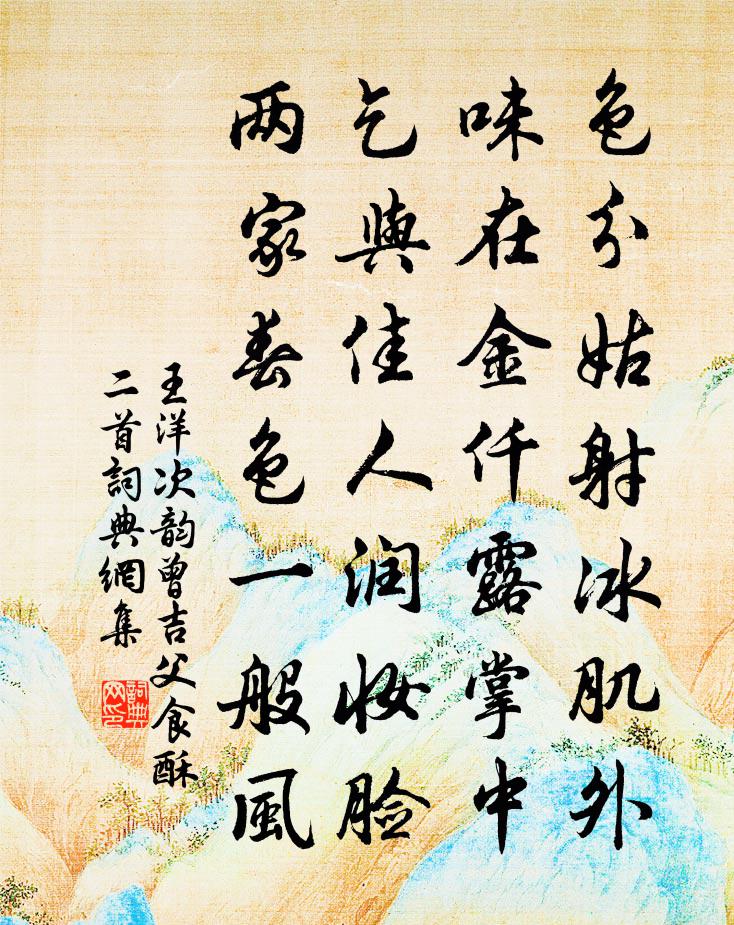 色分姑射冰肌外
味在金仟露掌中
乞與佳人润妆脸
两家春色一般風
王洋次韵曾吉父食酥
二首詞典網集
詞典